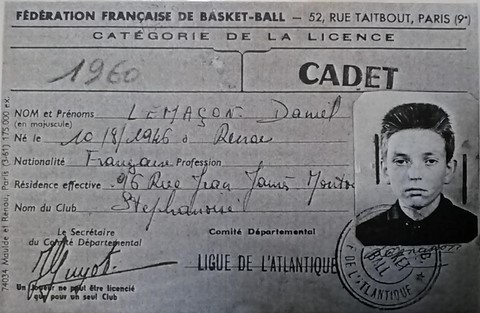 FÉDÉRATION FRANÇAISE DE BASKET-BALL — 52, RUE TAITBOUT, PARIS (9ᵉ)
CATÉGORIE DE LA LICENCE
1960
CADET
NOM et Prénoms LEMAÇON Daniel
(en majuscule)
Né le 10/8/1946 à Renac
Nationalité Française Profession
Résidence effective 96 Rue Jean Jaurès
Nom du Club Stéphanoise
Le Secrétaire
du Comité Départemental
Comité Départemental
LIGUE DE L'ATLANTIQUE
Un Joueur ne peut être licencié
que pour un seul Club
74034 Maulde et Renou, Paris (3-61) 175 000 ex.
DE L'ATLANTIQUE